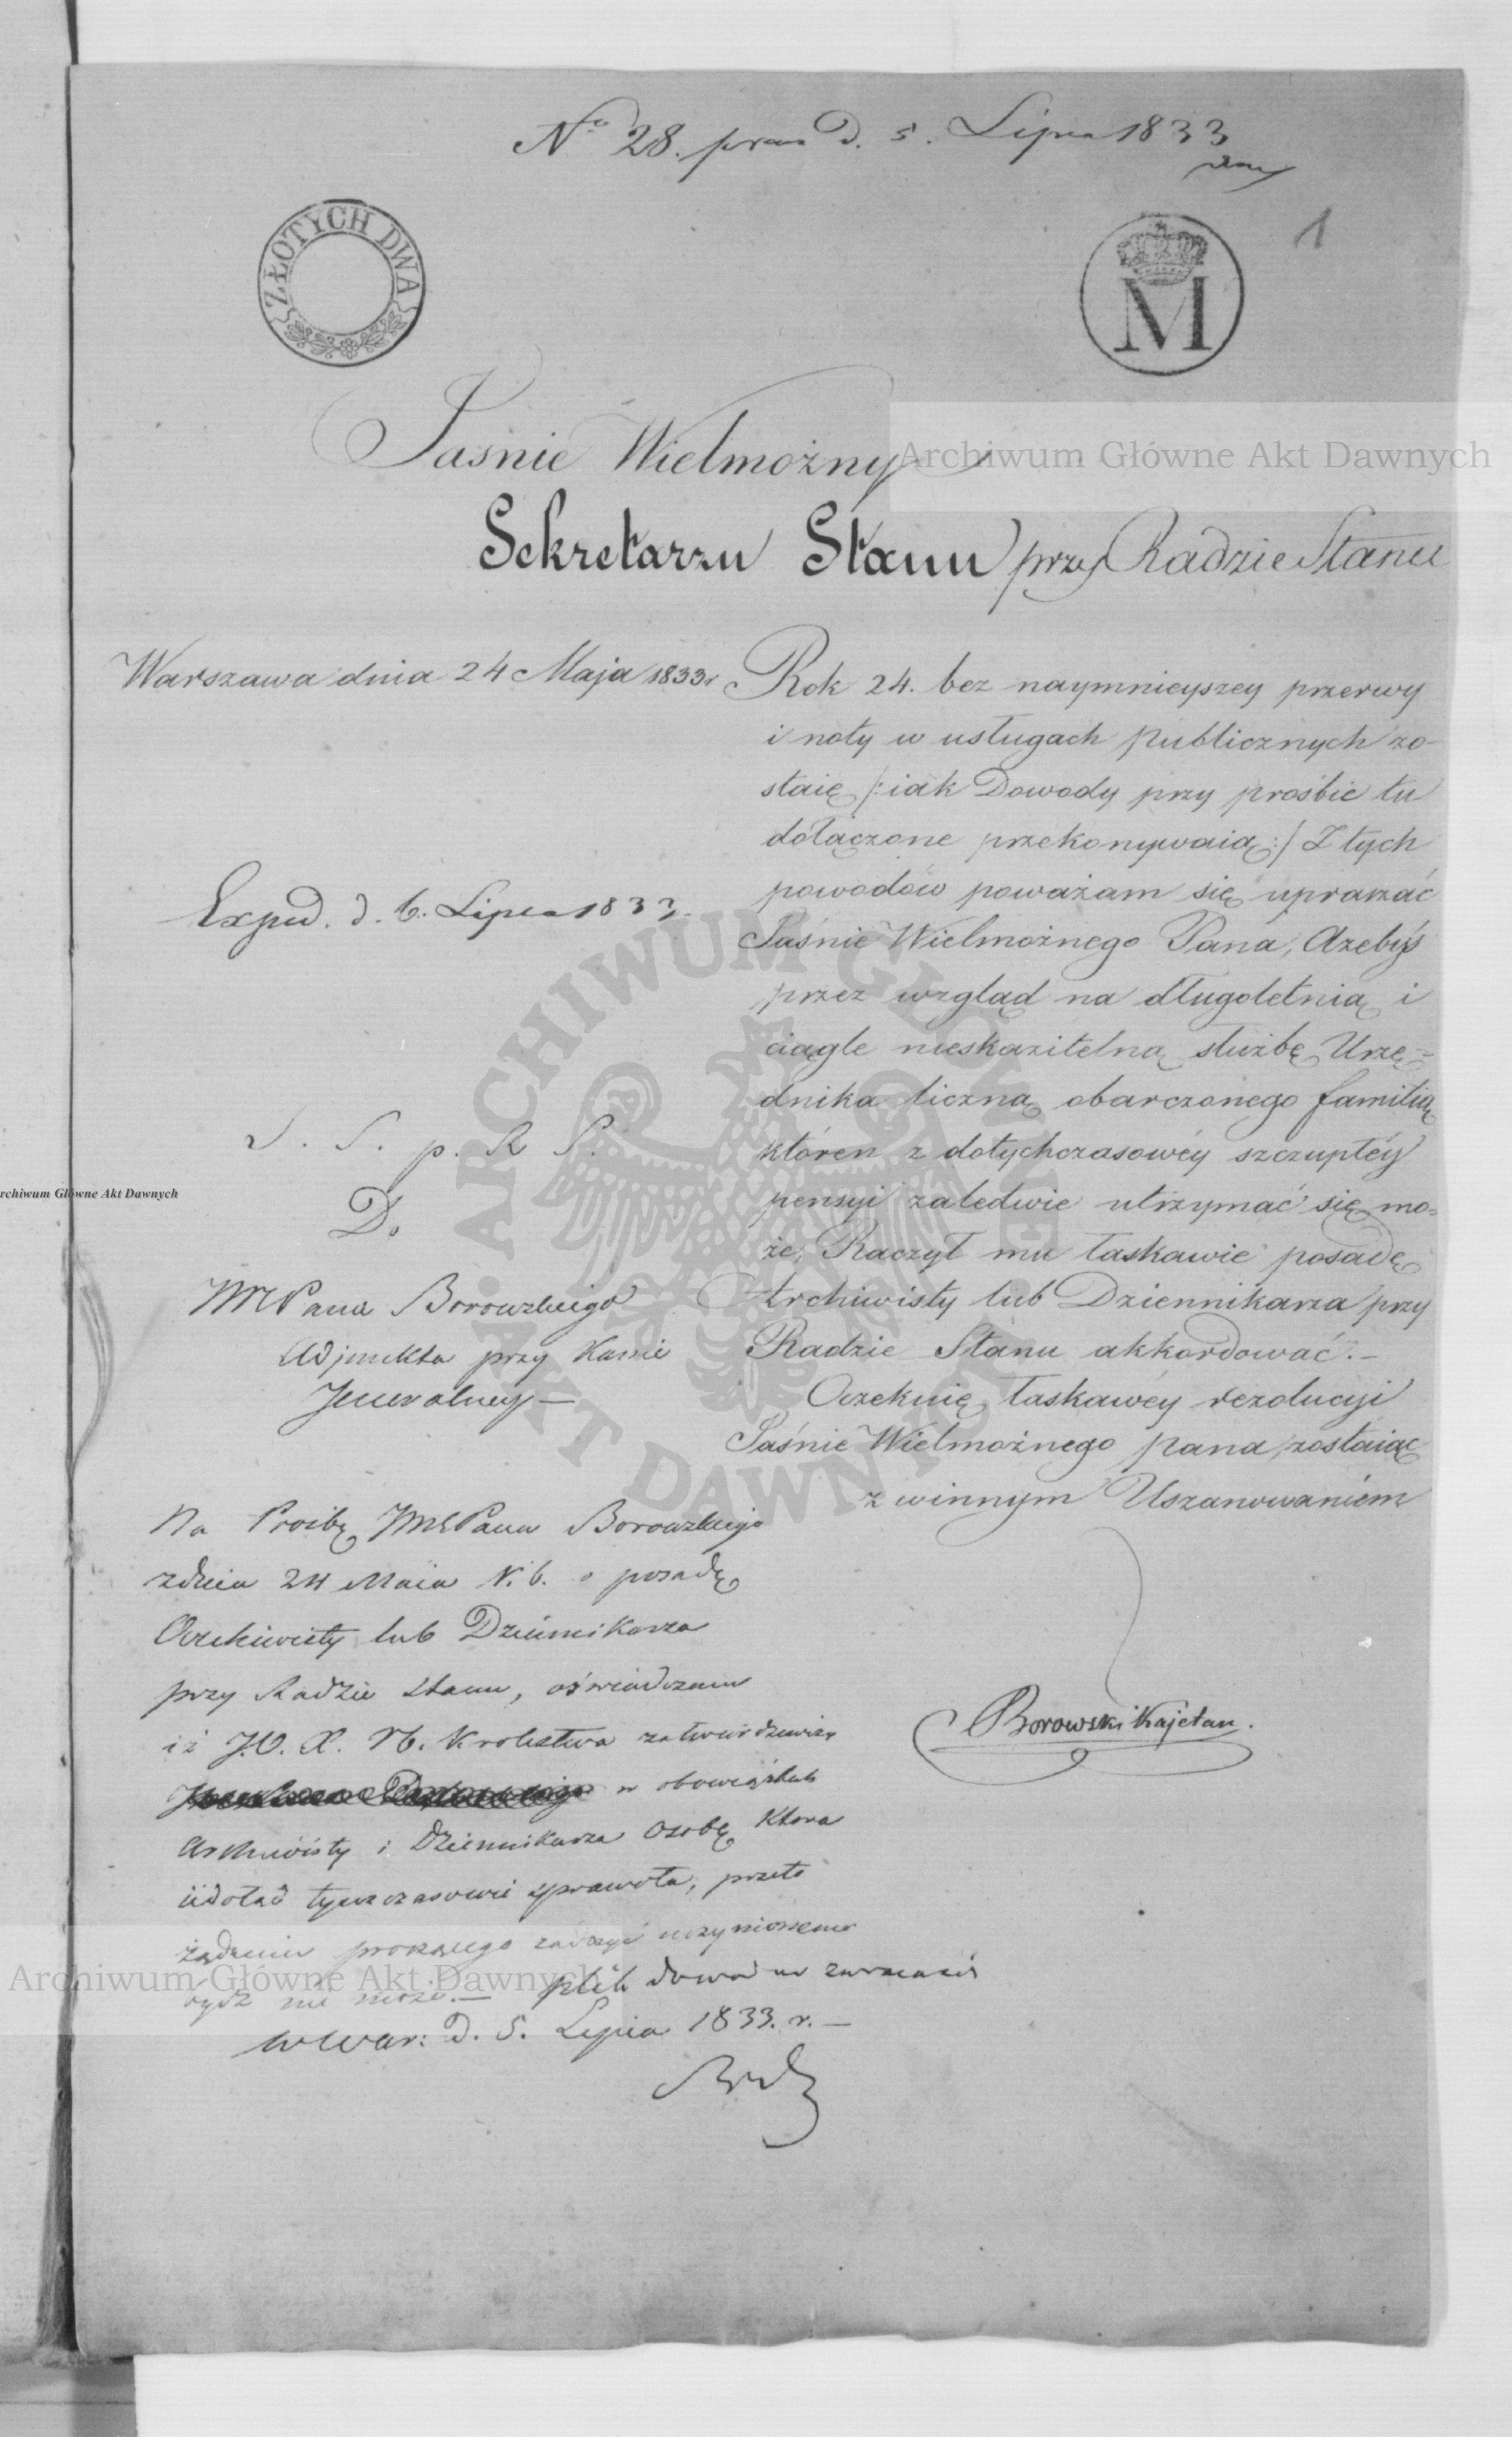 No 28. praes d. 5. Lipca 1833
ZŁOTYCH DWA
M
1
Jaśnie Wielmożny
Sekretarzu Stanu przy Radzie Stanu
Warszawa dnia 24 Maja 1833r
Rok 24. bez naymnieyszey przerwy
i noty w usługach publicznych zo-
staię /:iak Dowody przy prośbie tu
dołączone przekonywaią:/ Z tych
powodów poważam się upraszać
Jaśnie Wielmożnego Pana, Ażebyś
przez wzgląd na długoletnią i
ciągle nieskazitelną służbę Urzę=
dnika liczną obarczonego familią
któren z dotychczasowéy szczupłéy
pensyi zaledwie utrzymać się mo=
że, Raczył mu łaskawie posadę
Archiwisty lub Dziennikarza przy
Radzie Stanu akkordować.-
Oczekuię łaskawéy rezolucyi
Jaśnie Wielmożnego pana, zostaiąc
z winnym Uszanowaniem
Borowski Kajetan.
Exped. d. 6. Lipca 1833.
S. S. p. R S.
Do
JMPana Borowskiego
Adjunkta przy Kassie
Jeneralney —
Na Prośbę JMPana Borowskiego
z dnia 24 Maia r. b. o posadę
Archiwisty lub Dziennikarza
przy Radzie Stanu, oświadczam
iż J.O. X. N. Krolestwa zatwierdziwszy
w obowiązkach
Archiwisty i Dziennikarza Osobę Ktora
ie dotąd tymczasowie sprawowała, przeto
żądaniu proszącego zadosyć uczynionem
bydź nie może. — plik dowodów zwracaiąc
w War: d. 5. Lipca 1833. r. —
Archiwum Główne Akt Dawnych
Archiwum Główne Akt Dawnych
Archiwum Główne Akt Dawnych
ARCHIWUM GŁÓWNE AKT DAWNYCH